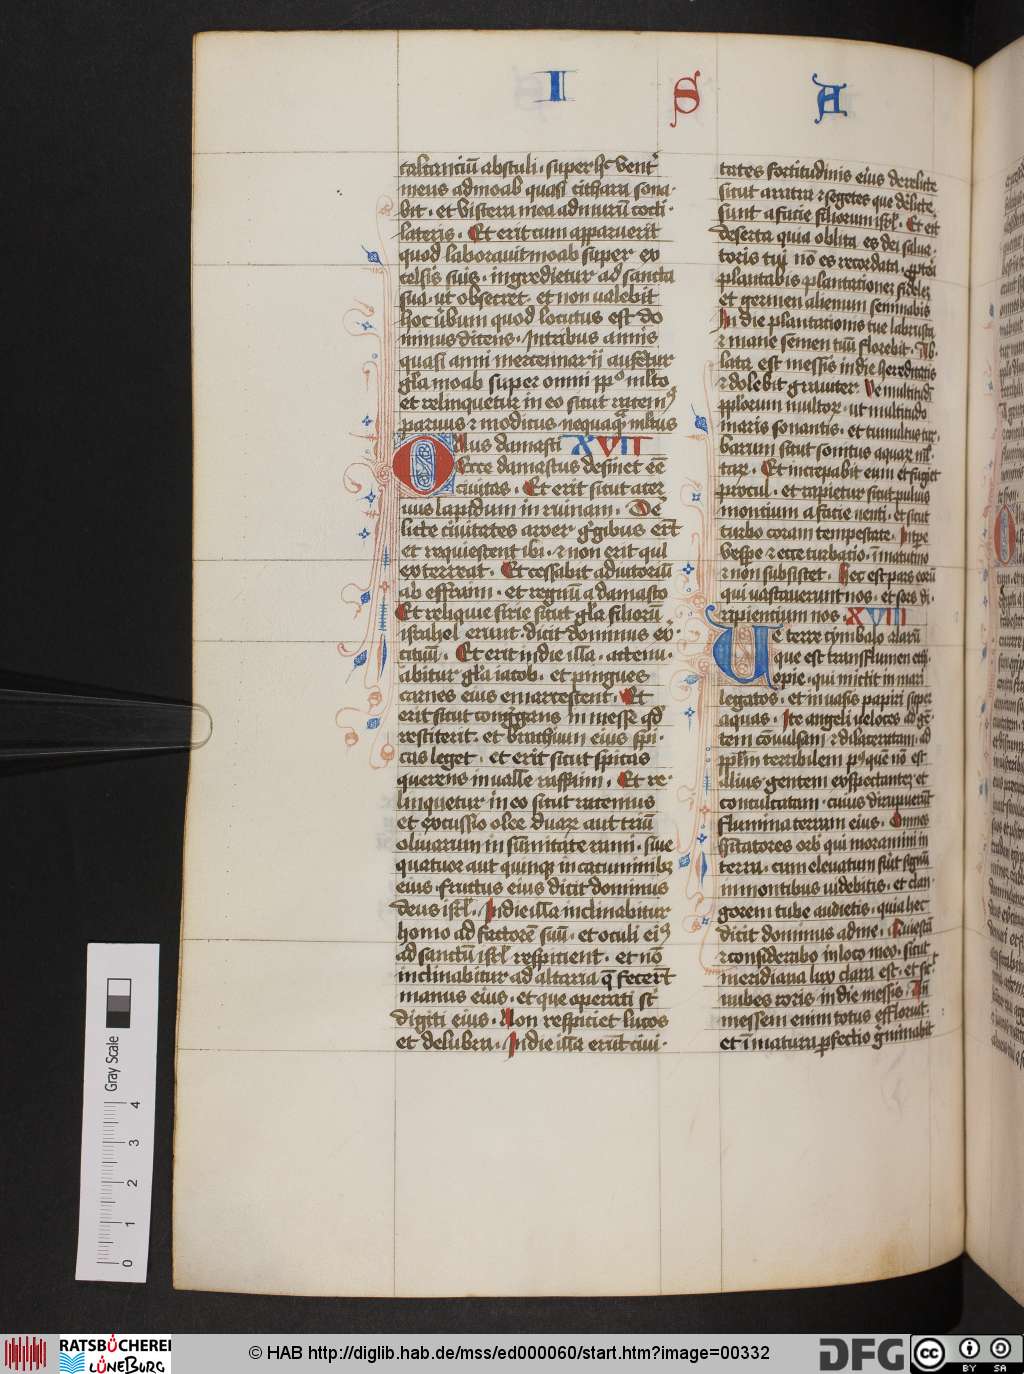 I S A
calcanciū abstuli · super hͦ vent᷑
meus ad moab quasi cithara sona·
bit · et viscera mea ad murū cocti·
lateris · Et erit cum apparuerit
quod laborauit moab super ex
celsis suis · ingredietur ad sancta
sua · ut obsecret · et non ualebit
hoc ūbum quod locutus est do
minus dicens · In tribus annis
quasi anni mercennarii aufetur
gl̄a moab super omni pp̄o m̄lto
et relinquetur in eo sicut racemꝰ
paruus ⁊ modicus nequaqᷓ m̄ltus
Onus damasci XVII
Ecce damascus desinet eē
ciuitas · Et erit sicut acer
uus lapidum in ruinam · De
licte ciuitates aroer g̾gibus er̄t
et requiescent ibi · ⁊ non erit qui
exterreat · Et cessabit adiutoriū
ab effraim · et regnū a damasco
Et reliquie sirie sicut gl̄a filiorū
israhel erunt · dicit dominus ex̾·
cituū · Et erit in die illa · attenu·
abitur gl̄a iacob · et pingues
carnes eius emarcescent · Et
erit sicut cong̾gans in messe qd̄
restiterit · et brachium eius spi·
cas leget · et erit sicut spicas
querens in valle raffaim · Et re·
linquetur in eo sicut racemus
et excussio olee duaꝝ aut triū
oliuarum in sūmitate rami · siue
quatuor aut quinqꝫ in cacuminibꝫ
eius · fructus eius dicit dominus
deus isrl̄ · In die illa inclinabitur
homo ad factorē suū · et oculi eiꝰ
ad sanctū isrl̄ respicient · et nō
inclinabitur ad altaria q̄ fecer̄t
manus eius · et que operati st̄
digiti eius · Non respiciet lucos
et delubra · In die illa erūt ciui·
tates fortitudinis eius derelicte
sicut aratra ⁊ segetes que derelicte
sunt a facie filiorum isrl̄ · Et erit
deserta quia oblita es dei salua·
toris tui nō es recordata · ꝓpt̾ea
plantabis plantationeꝫ fideleꝫ
et germen alienum seminabis
In die plantationis tue labrusca
⁊ mane semen tuū florebit · Ab·
lata est messis in die hereditatis
⁊ dolebit grauiter · Ve multitudi
pp̄lorum multoꝝ · ut multitudo
maris sonantis · et tumultus tur·
barum sicut sonitus aquaꝝ ml̄·
taꝝ · Et increpabit eum et fugiet
procul · et rapietur sicut puluis
montium a facie uenti · et sicut
turbo coram tempestate · In tpe
vespe ⁊ ecce turbatio · ī matutino
⁊ non subsistet · Hec est pars eorū
qui vastauerunt nos · et sors di·
ripientium nos · XVIII
Ve terre cymbalo alarū
que est trans flumen ethi·
opie · qui mictit in mari
legatos · et in uasis papiri super
aquas · Ite angeli veloces ad gē·
tem cōuulsam ⁊ dilaceratam · ad
pp̄lm terribilem pꝰ quē nō est
alius · gentem exspectanteꝫ et
conculcatam · cuius diripuerūt
flumina terram eius · Omnes
hitatores orb̾ qui moramini in
terra · cum eleuatum fu̾it signū
in montibus uidebitis · et clan·
gorem tube audietis · quia hec
dicit dominus ad me · Quiescā
⁊ considerabo in loco meo · sicut
meridiana lux clara est · et sic̄
nubes roris in die messis · Añ
messem enim totus effloruit ·
et ī matura ꝑfectio g̾minabit
0 1 2 3 4
Gray Scale
RATSBÜCHEREI
LÜNEBURG
© HAB http://diglib.hab.de/mss/ed000060/start.htm?image=00332
DFG
cc BY SA